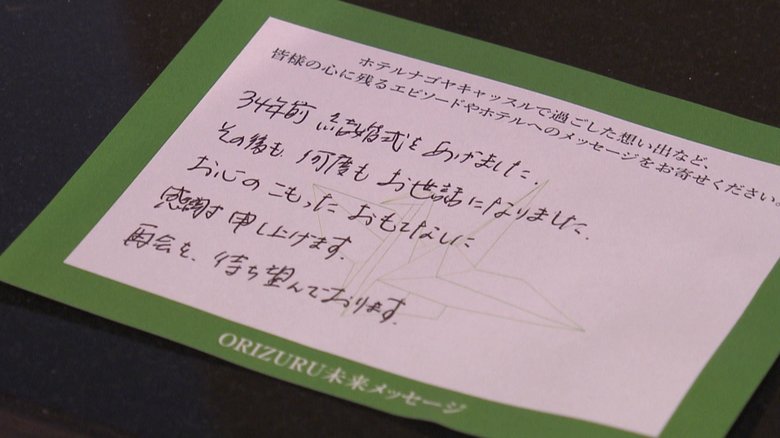 ホテルナゴヤキャッスルで過ごした想い出など、
皆様の心に残るエピソードやホテルへのメッセージをお寄せください。
34年前 結婚式をあげました.
その後も 何度も お世話になりました.
お心の こもった おもてなしに
感謝 申し上げます.
再会を、待ち望んでおります.
ORIZURU未来メッセージ